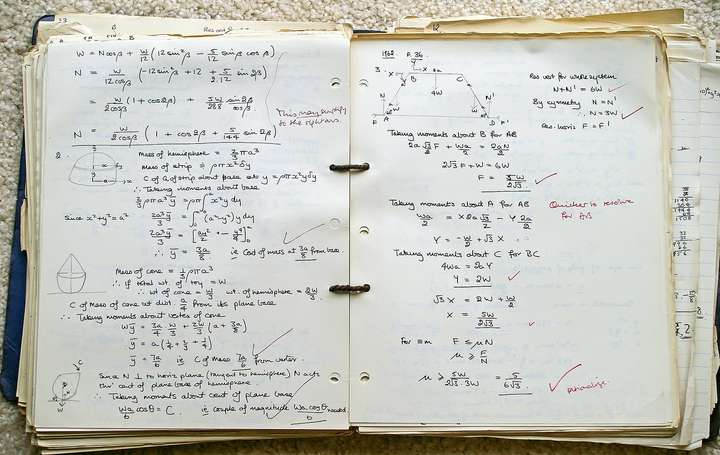 W = N cosβ + W/12 (12 sin²β − 5/12 sinβ cosβ)
N = W/12cosβ (−12 sin²β + 12 + 5/2.12 sin 2β)
= W/2cosβ (1 + cos2β) + 5W/288 sin2β/cosβ
This may simplify
to the right ans
N = W/2cosβ (1 + cos2β + 5/144 sin2β)
2.
Mass of hemisphere = 2/3 ρπa³
Mass of strip = ρπx²δy
C of G of strip about base
∴ Taking moments about base
2/3 ρπa³ȳ = ρπ ∫ x²y dy
since x²+y²=a²
2a³ȳ/3 = ∫ (a²−y²)y dy
∴ ȳ = 3a/8 ie C of mass at 3a/8 from base
Mass of cone = 1/3 ρπa³
∴ If total wt. of toy = W
∴ wt of cone = W/3 wt. of hemisphere = 2W/3
C of Mass of cone wt dist a/4 from its plane base
∴ Taking moments about vertex of cone
Wȳ = 3a/4 W/3 + 2W/3 (a + 3a/8)
ȳ = a(1/4 + 2/3 + 1/4)
ȳ = 7a/6 ie C of Mass 7a/6 from vertex
Since N ⊥ to horiz plane (tangent to hemisphere) N acts
thro' cent of plane base of hemisphere
∴ Taking moments about cent of plane base
Wa/6 cosθ = C. ie couple of magnitude Wa cosθ/6 needed
12
1962
3.
X
Y
B
C
4W
N
N'
F
A
D
F'
Res vert for whole system
N+N' = 6W
By symmetry N = N'
∴ N = 3W
Res. horiz F = F'
Taking moments about B for AB
2a√3/2 F + Wa/2 = 2aN/2
2√3 F + W = 6W
F = 5W/2√3
Taking moments about A for AB
Quicker to resolve
for AB
Wa/2 = X 2a√3/2 − Y 2a/2
Y = −W/2 + √3 X
Taking moments about C for BC
4Wa = 2aY
Y = 2W
√3 X = 2W + W/2
X = 5W/2√3
For equm F ≤ μN
μ ≥ F/N
μ ≥ 5W/2√3.3W = 5/6√3